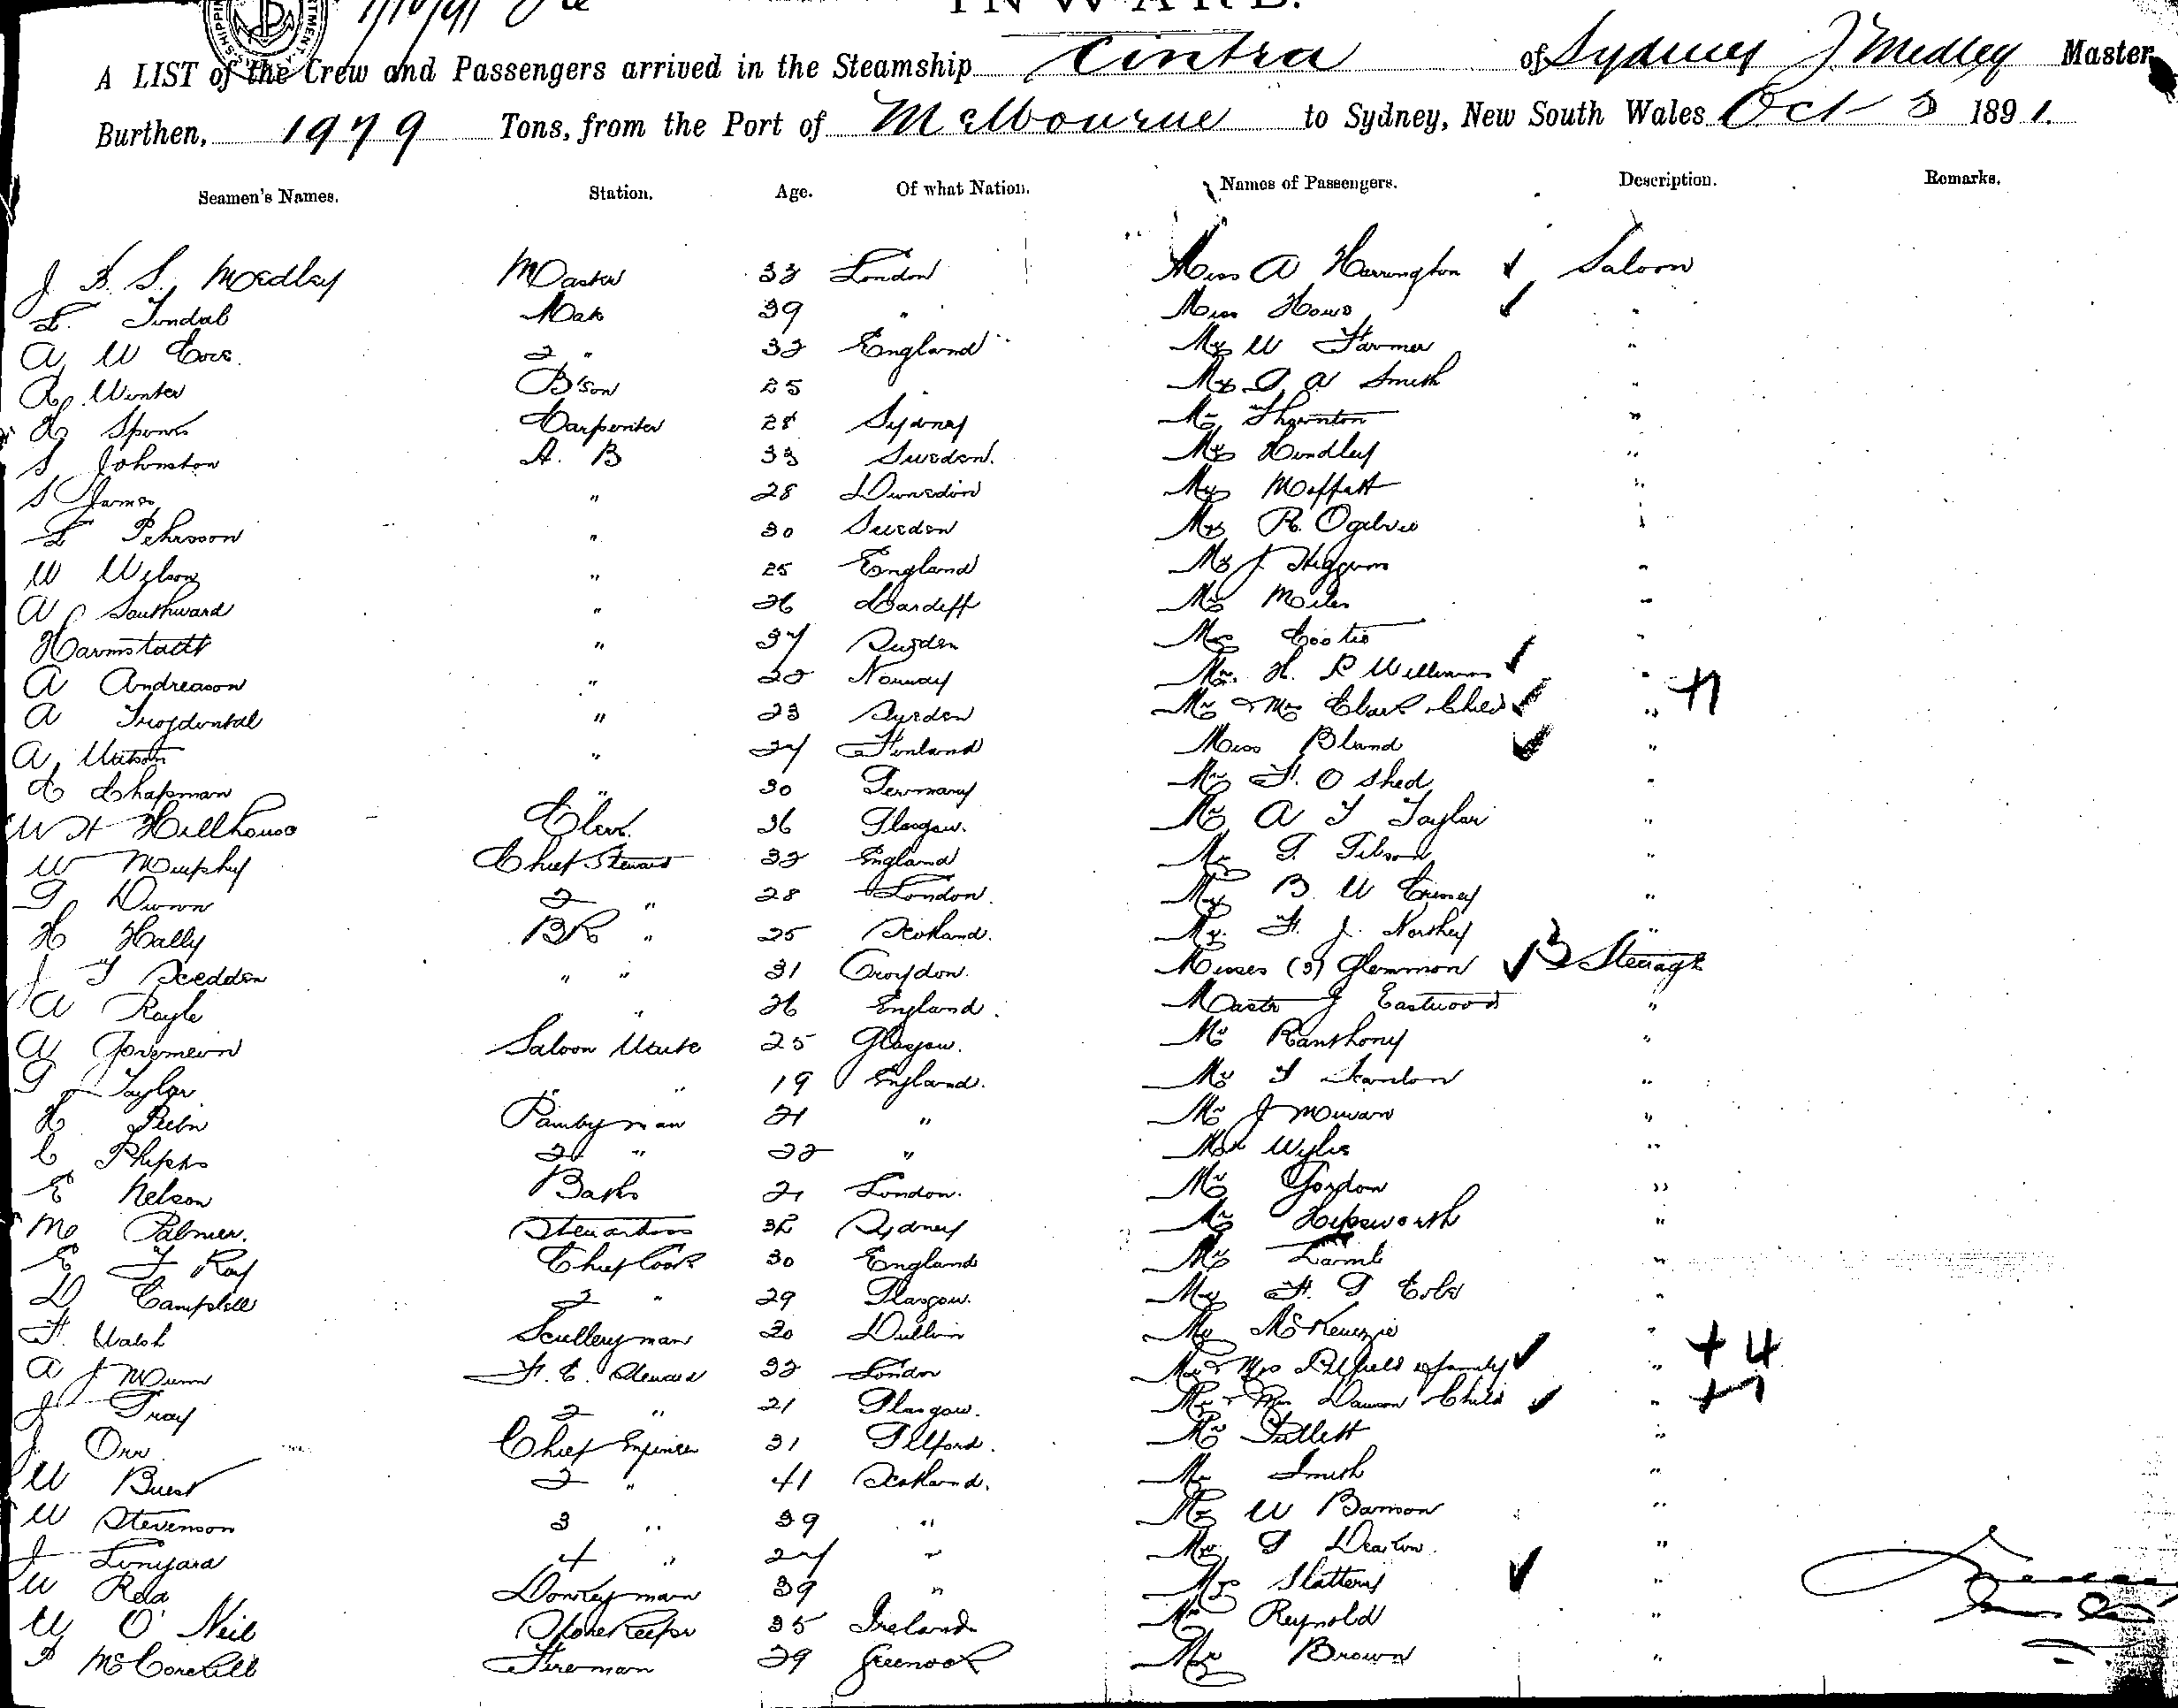 INWARD.
A LIST of the Crew and Passengers arrived in the Steamship Cintra of Sydney J. Medley Master
Burthen, 1979 Tons, from the Port of Melbourne to Sydney, New South Wales Oct 3 1891.
Seamen's Names. Station. Age. Of what Nation. Names of Passengers. Description. Remarks.
J S. Medley Master 33 London Miss A Harrington Saloon
Tindal Mate 39 " Miss Howe "
A W 2 " 32 England Mr W Farmer "
R. Winter B'son 25 " Mr A Smith "
Carpenter 28 Sydney Mr Thornton "
S Johnston A. B 33 Sweden. Mr Hindley "
S James " 28 Dunedin Mr Moffatt "
Pehrsson " 30 Sweden Mr R. Ogilvie "
W Wilson " 25 England Mr J Higgins "
A Southward " 26 Cardiff Mr Miles "
Harmstadt " 37 Sweden "
A Andreason " 22 Norway Mr. H. P Williams "
A Trojdental " 23 Sweden Mr & Mrs Clark Child " +1
A " 27 Finland Miss Bland "
C Chapman " 30 Germany Mr F. O Shed "
W H Hillhouse Clerk. 36 Glasgow. Mr A T Taylor "
W Murphy Chief Steward 32 England Mr "
Dunn 2 " 28 London. Mr B W "
H Hally BR " 25 Scotland. Mr. F. J. Northey "
J T Scedden " " 31 Croydon. Misses (3) Glemmon 3 Steerage
A Royle " 26 England. Master J Eastwood "
A Saloon Waiter 25 Glasgow. Mr Ranthony "
G Taylor " " 19 England. Mr T Scanlon "
H Pantryman 21 " Mr J "
C Phipps 2 " 22 " Mr Wylie "
E Nelson Baths 21 London. Mr Gordon "
M Palmer. Stewardess 32 Sydney Mr Hepworth "
E F Ray Chief Cook 30 England Mr Lamb "
D Campbell 2 " 29 Glasgow. Mr "
F. Walsh Sculleryman 20 Dublin Mr McKenzie "
A J Munn F. C. Steward 32 London Mr & Mrs family " +4
J Gray 2 " 21 Glasgow. Mr & Mrs Dawson Child " +1
J. Orr Chief Engineer 31 Mr "
W 2 " 41 Scotland. Mr Smith "
W Stevenson 3 " 39 " Mr W "
J 4 " 27 " Mr "
W Reid Donkeyman 39 " Slattery "
O'Neil Storekeeper 35 Ireland Mr Reynold "
Fireman 29 Greenock Mr Brown "